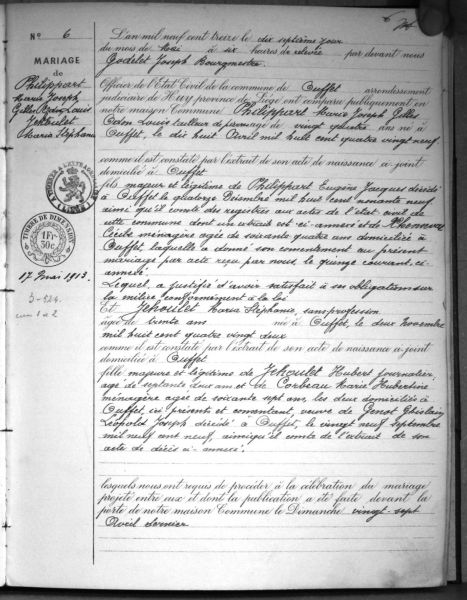 N° 6
MARIAGE
de
Philippart
Marie Joseph
Gilles Odon Louis
&
Jehoulet
Marie Stéphanie
TIMBRE DE DIMENSION
1 Fr.
50c.
17 Mai 1913.
L'an mil neuf cent treize le dix septième jour
du mois de Mai à six heures de relevée par devant nous
Godelet Joseph Bourgmestre
Officier de l'Etat Civil de la commune de Ouffet arrondissement
judiciaire de Huy province de Liége ont comparu publiquement en
notre maison Communale Philippart Marie Joseph Gilles
Odon Louis tailleur de pierres âgé de vingt quatre ans né à
Ouffet, le dix huit Avril mil huit cent quatre vingt neuf.
comme il est constaté par l'extrait de son acte de naissance ci-joint
domicilié à Ouffet
fils majeur et légitime de Philippart Eugène Jacques décédé
à Ouffet le quatorze Décembre mil huit cent nonante neuf,
ainsi qu'il conste des registres aux actes de l'état civil de
cette commune dont un extrait est ci-annexé et de
Cécile ménagère âgée de soixante quatre ans domiciliée à
Ouffet laquelle a donné son consentement au présent
mariage par acte reçu par nous le quinze courant, ci-
annexé.
Lequel a justifié d'avoir satisfait à ses obligations sur
la milice conformément à la loi
Et Jehoulet Marie Stéphanie, sans profession
âgée de trente ans née à Ouffet, le deux Novembre
mil huit cent quatre vingt deux
comme il est constaté par l'extrait de son acte de naissance ci-joint
domiciliée à Ouffet
fille majeure et légitime de Jehoulet Hubert journalier,
âgé de septante deux ans et de Corbeau Marie Hubertine
ménagère âgée de soixante sept ans, les deux domiciliés à
Ouffet, ici présents et consentant, veuve de Genot Ghislain
Léopold Joseph décédé à Ouffet, le vingt neuf septembre
mil neuf cent neuf, ainsi qu'il conste de l'extrait de son
acte de décès ci-annexé.
lesquels nous ont requis de procéder à la célébration du mariage
projeté entre eux et dont la publication a été faite devant la
porte de notre maison Commune le Dimanche vingt-sept
Avril dernier